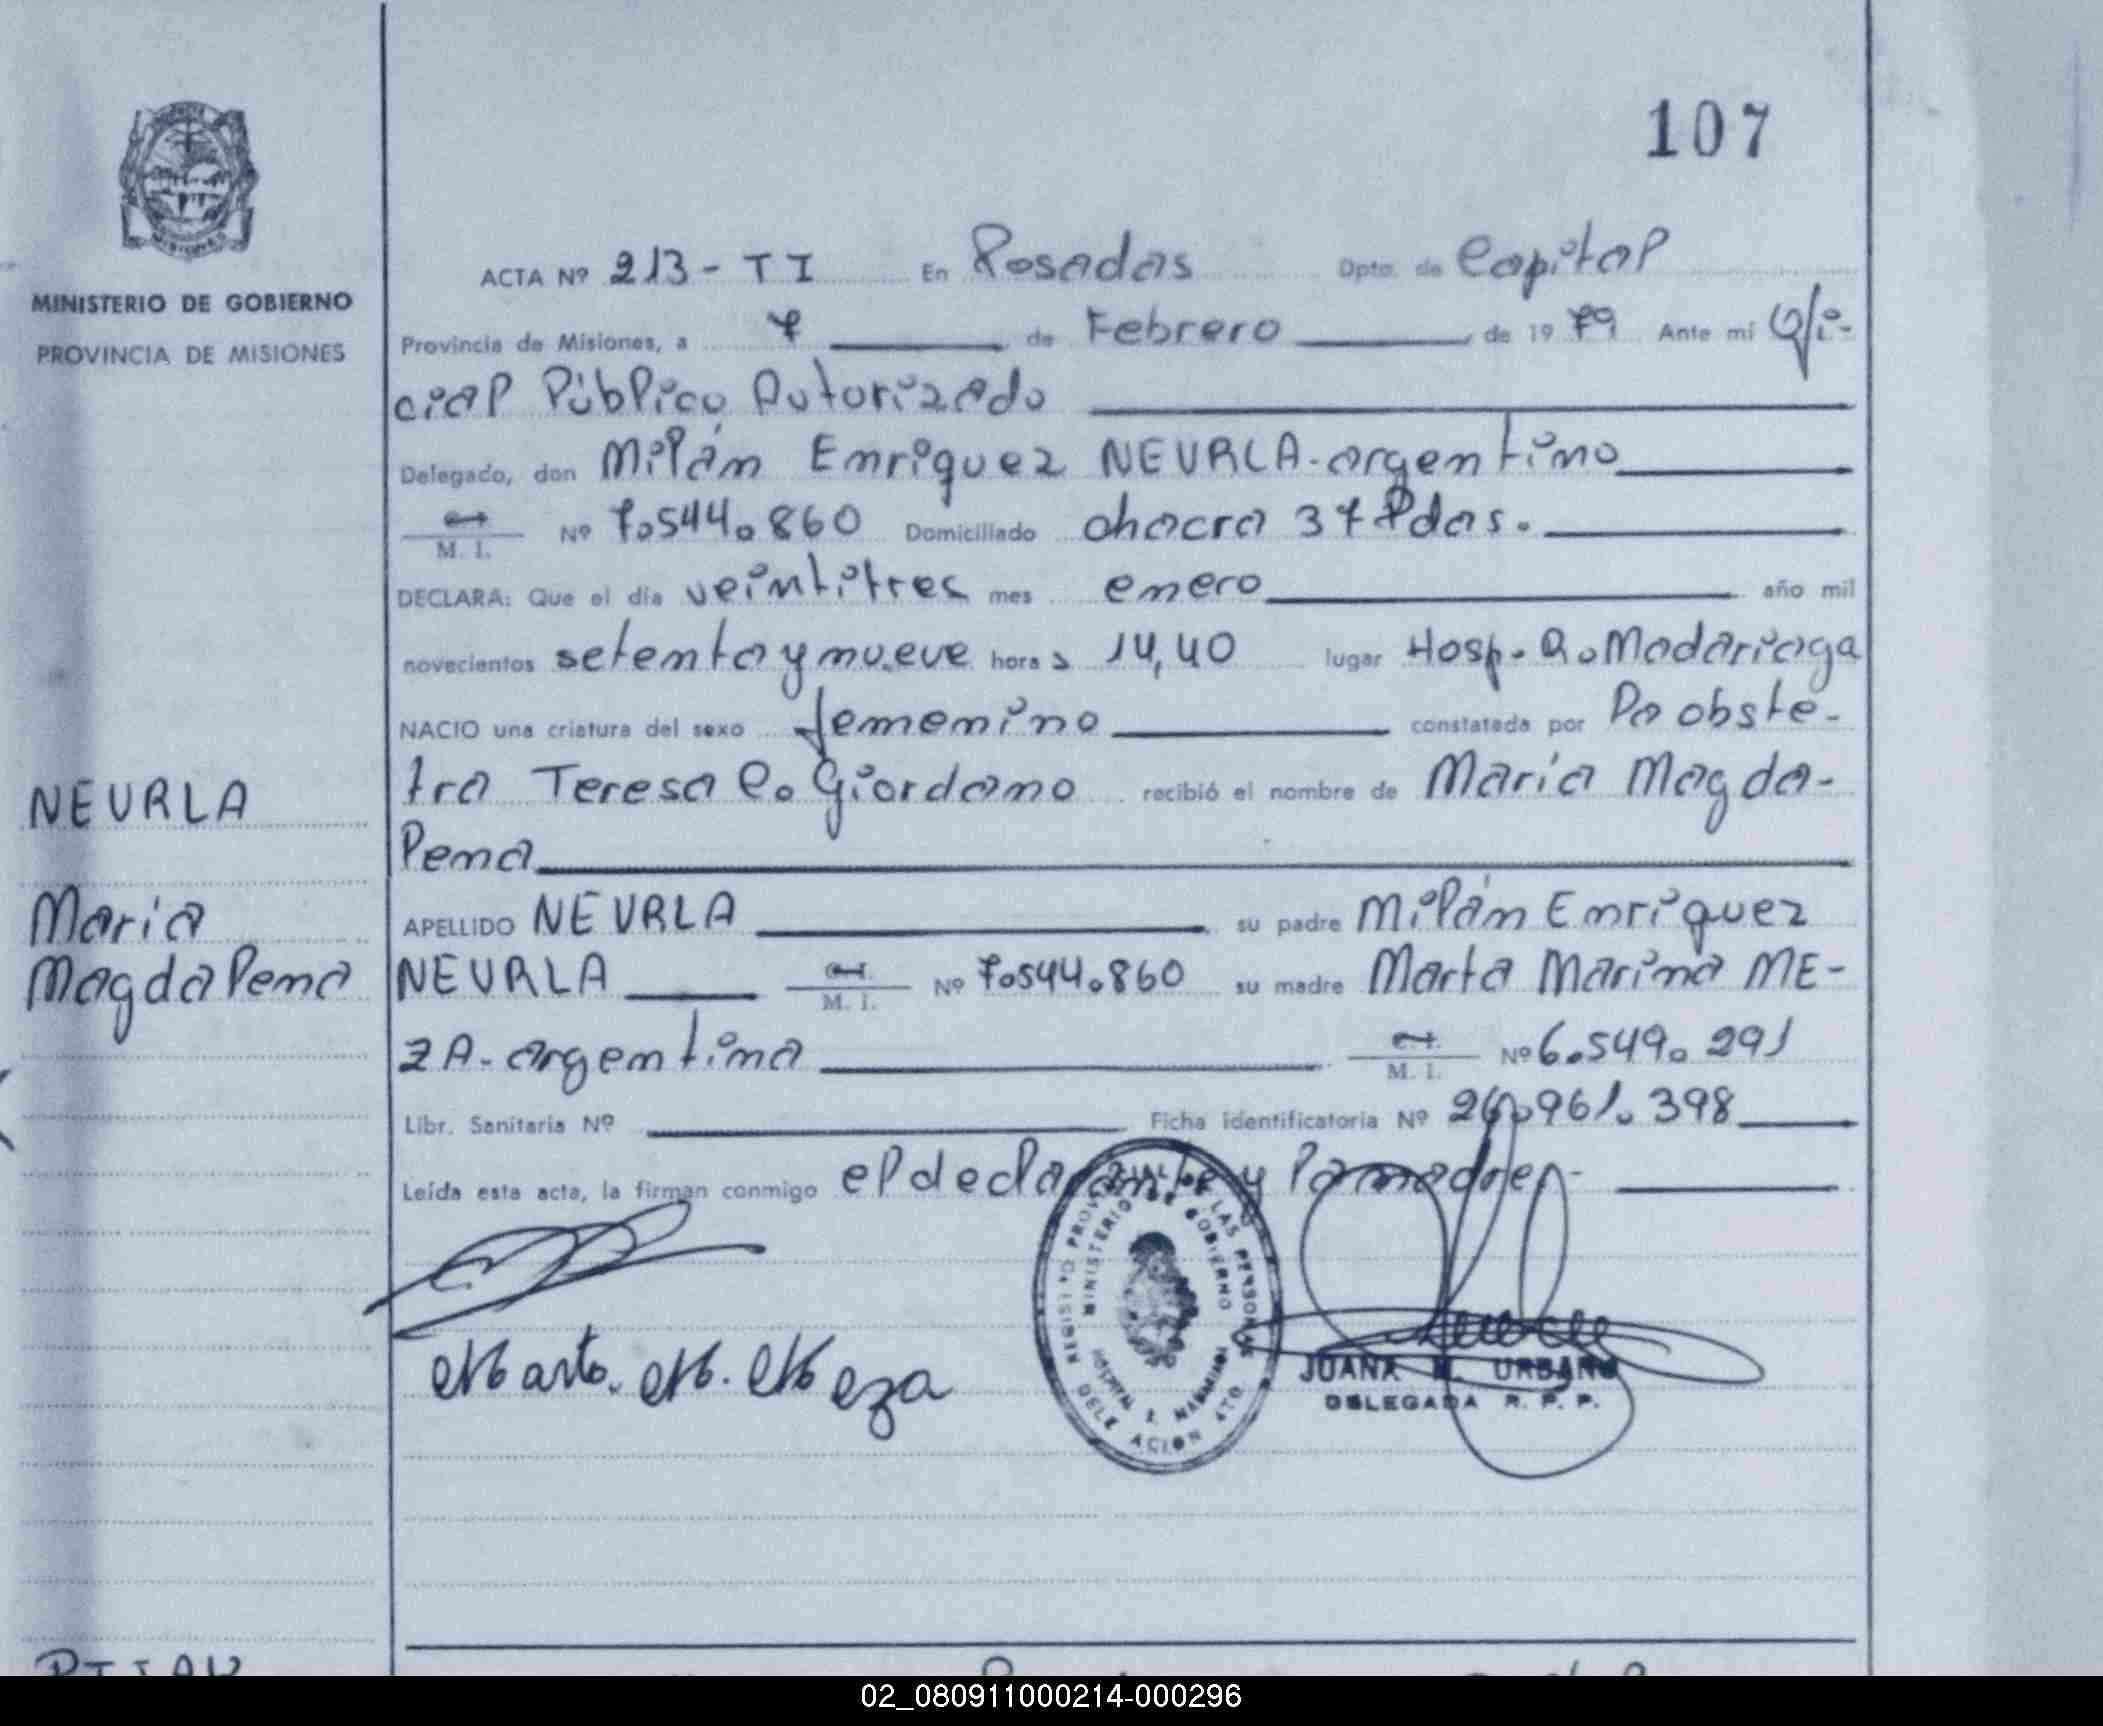 107
ACTA Nº 213 - T I En Posadas Dpto. de Capital
MINISTERIO DE GOBIERNO
PROVINCIA DE MISIONES
Provincia de Misiones, a 7 de Febrero de 1979 Ante mi Ofi-
cial Público Autorizado
Delegado, don Milán Enriquez NEVRLA-argentino
M. I. Nº 7.544.860 Domiciliado chacra 37 Pdas.
DECLARA: Que el día veintitres mes enero año mil
novecientos setenta y nueve hora s 14,40 lugar Hosp. R. Madariaga
NACIO una criatura del sexo femenino constatada por la obste-
tra Teresa C. Giordano recibió el nombre de María Magda-
lena
NEVRLA
María
Magdalena
APELLIDO NEVRLA su padre Milán Enriquez
NEVRLA M. I. Nº 7.544.860 su madre Marta Marina ME-
ZA-argentina M. I. Nº 6.549.291
Libr. Sanitaria Nº Ficha identificatoria Nº 26.961.398
Leída esta acta, la firman conmigo el declarante y la madre.-
Marta. M. Meza
REGISTRO PROVINCIAL DE LAS PERSONAS
MINISTERIO DE GOBIERNO
HOSPITAL R. MADARIAGA
DELEGACION 4TO
JUANA M. URBANO
DELEGADA R. P. P.
02_080911000214-000296